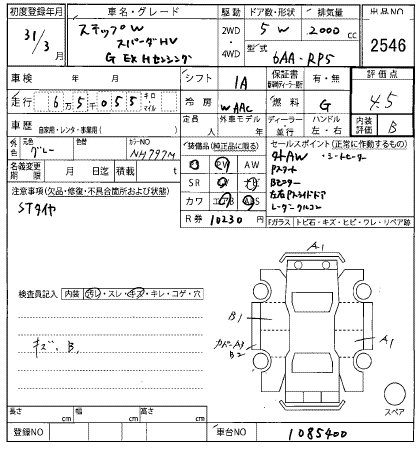 初度登録年月 車名・グレード 駆動 ドア数・形状 排気量 出品NO
31/3月 ステップW 2WD・4WD 5 W 2000cc 2546
スパーダHV 型式 6AA-RP5
G EX Hセンシング
車検 年 月 シフト 1A 保証書 有・無 評価点
走行 6万5千055 キロ・マイル 冷房 WAAC 燃料 G 4.5
車歴 自家用・レンタ・事業用( ) 定員 人 外車モデル 年 ディーラー 並行 ハンドル 左・右 内装 B
外色 元色 グレー 色替 カラーNO NH797M
装備品(純正品に限る)
セールスポイント(正常に作動するもの)
名義変更期限 月 日迄 積載 t
SR PW AW
カワ エアB ABS
社外AW ・シートヒーター
Pスタート
Bモニター
左右Pスライドドア
レーダークルコン
注意事項(欠品・修復・不具合箇所および状態)
STタイヤ
R券 10230 円
Fガラス トビ石・キズ・ヒビ・ワレ・リペア跡
検査員記入 内装 汚レ・スレ・キズ・キレ・コゲ・穴
キズ B1
A1
B1
B2
A1
A1
スペア
長さ cm 幅 cm 高さ cm
登録NO 車台NO 1085400